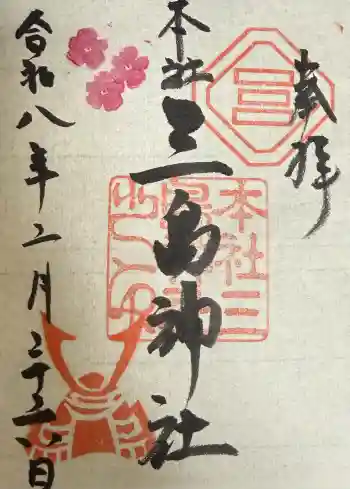 奉拝
本社三島神社
本社三
令和八年二月二十二日